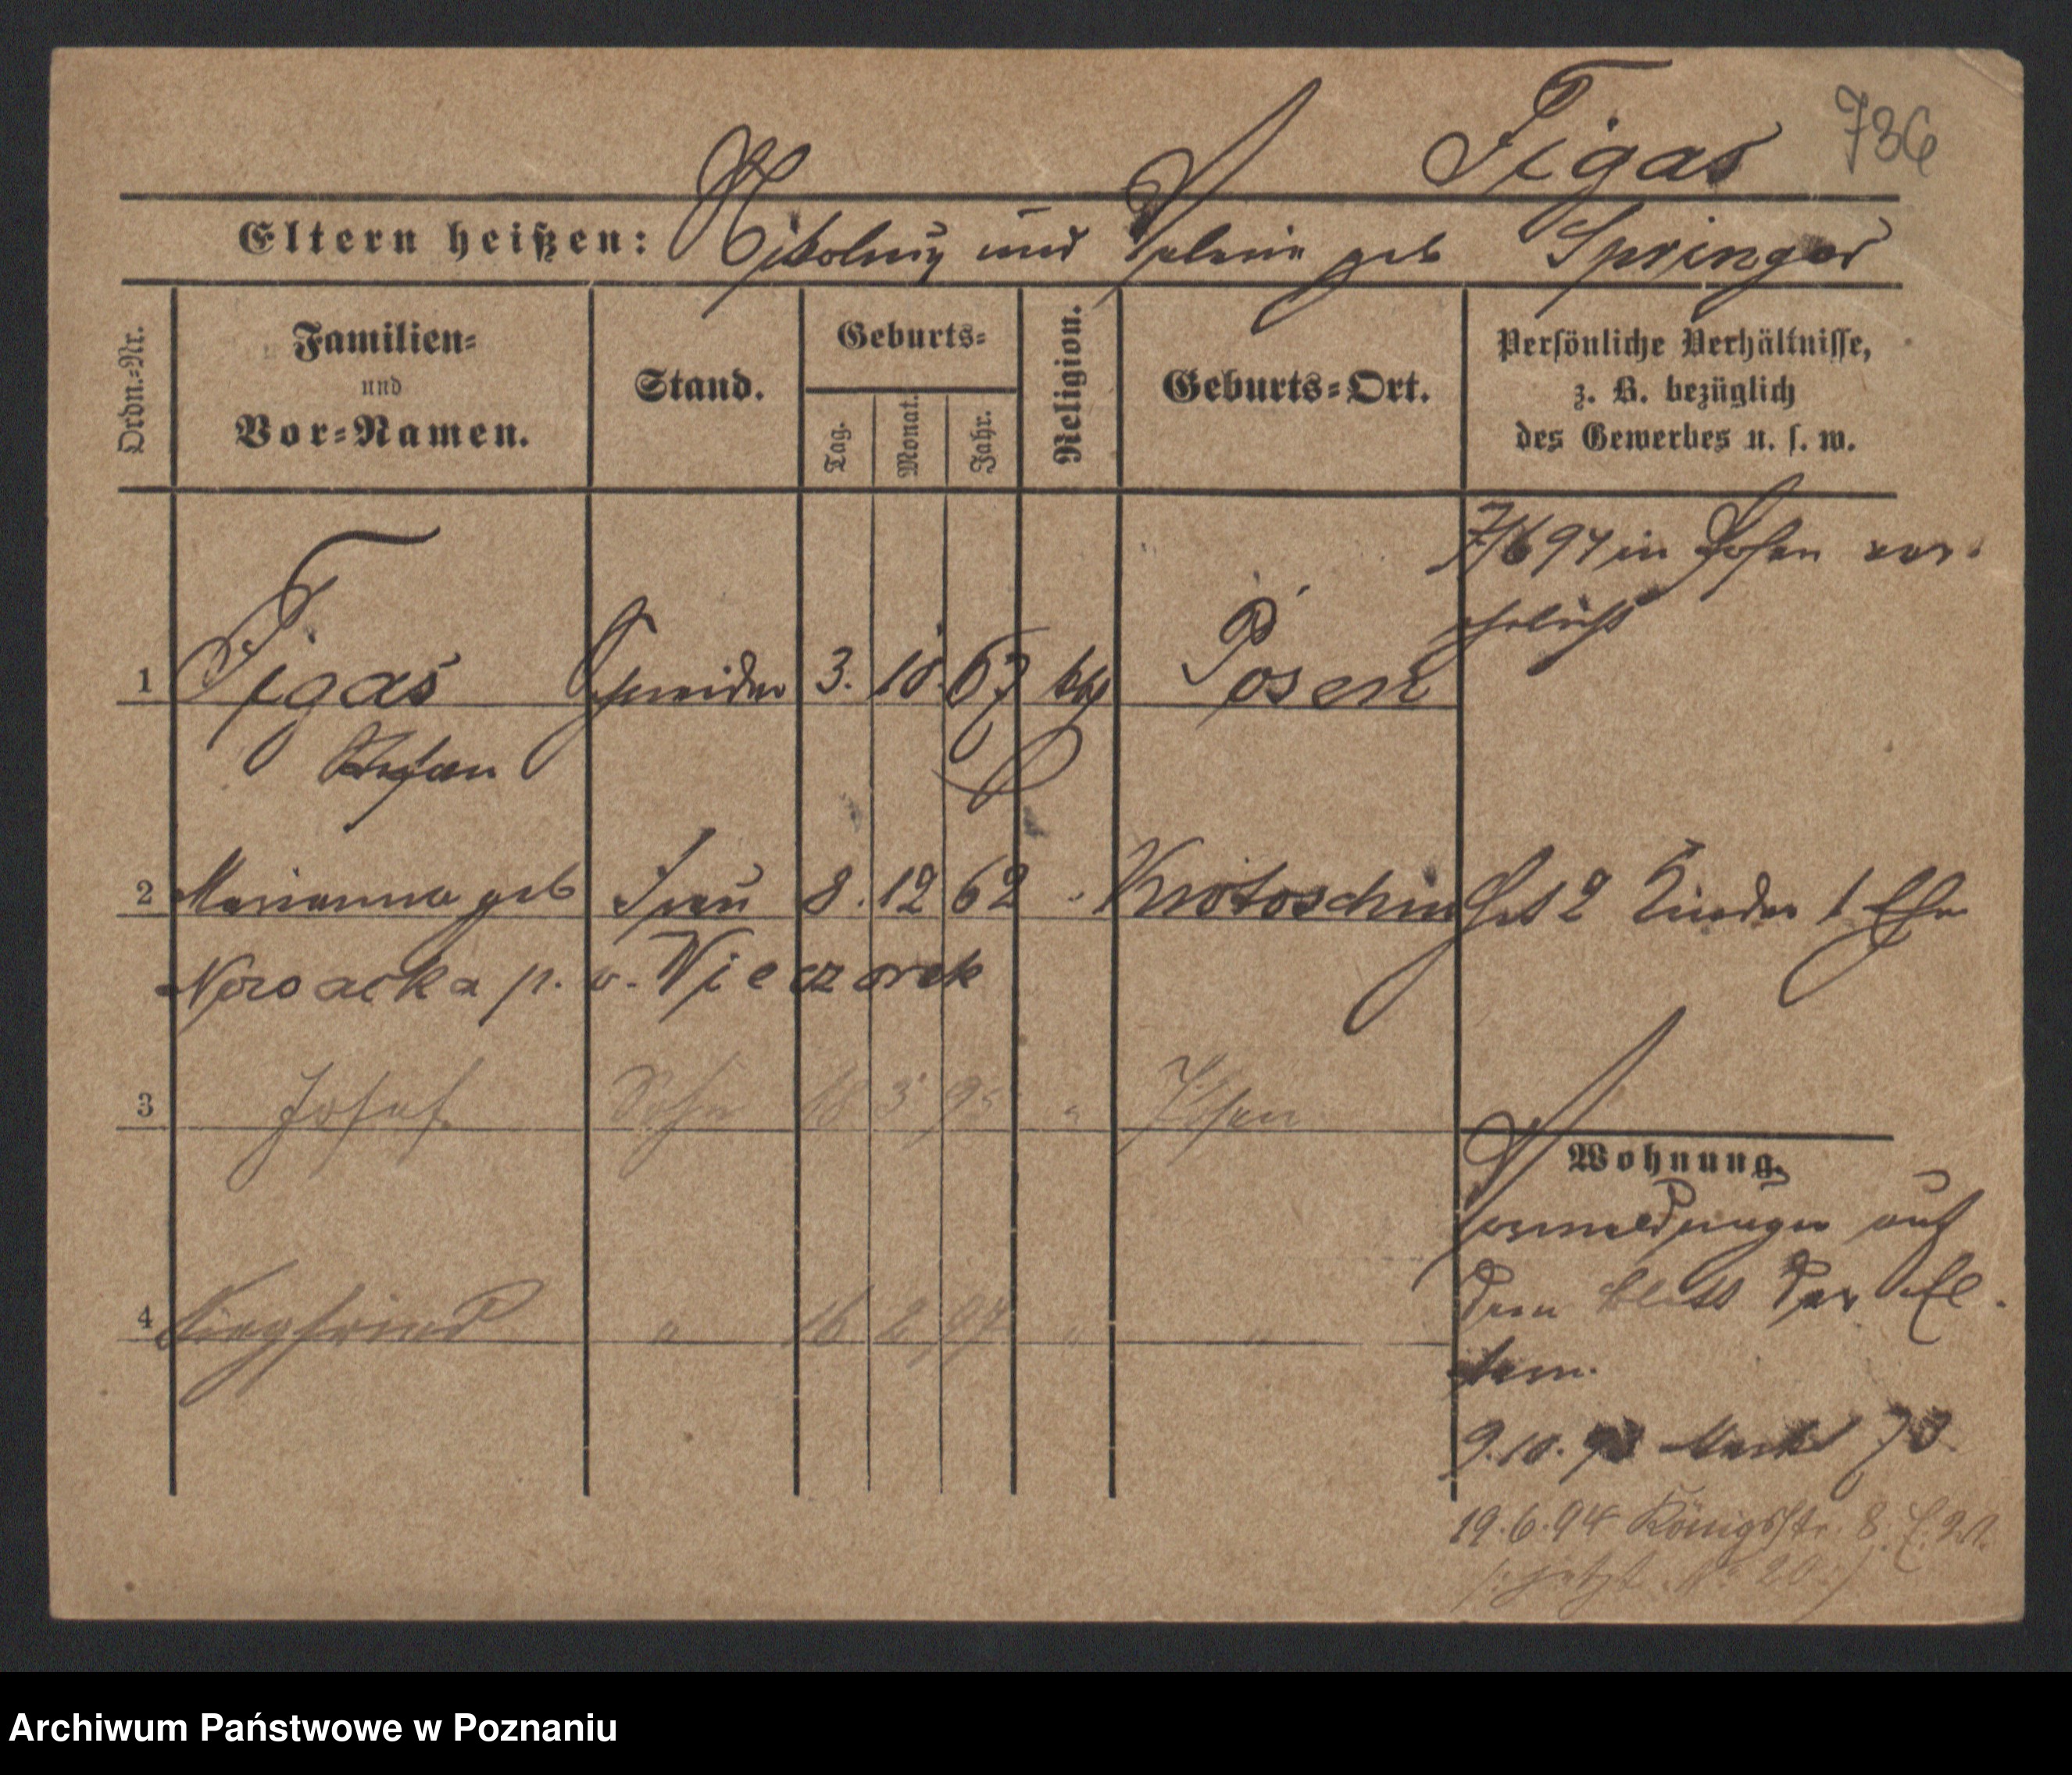 Figas 736
Eltern heißen: Nikolaus und geb Springer
Ordn.-Nr.
Familien-
und
Vor-Namen.
Stand.
Geburts-
Tag.
Monat.
Jahr.
Religion.
Geburts-Ort.
Persönliche Verhältnisse,
z. B. bezüglich
des Gewerbes u. s. w.
7/6 94 in Posen ver-
ehelicht
1 Figas Schneider 3. 10. 67 kth Posen
Stefan
2 Marianna geb Frau 8. 12 62 " Krotoschin Hat 2 Kinder 1 Ehe
Nosacka p. v. Wieczorek
3 Josef Sohn 18 3 95 " Posen
4 Siegfried " 16 2 97 " "
Wohnung.
Vormeldungen auf
dem Blatt der El-
tern.
9.10. Markt 73
19.6.94 Königsstr. 8
(: jetzt No 20 :)
Archiwum Państwowe w Poznaniu